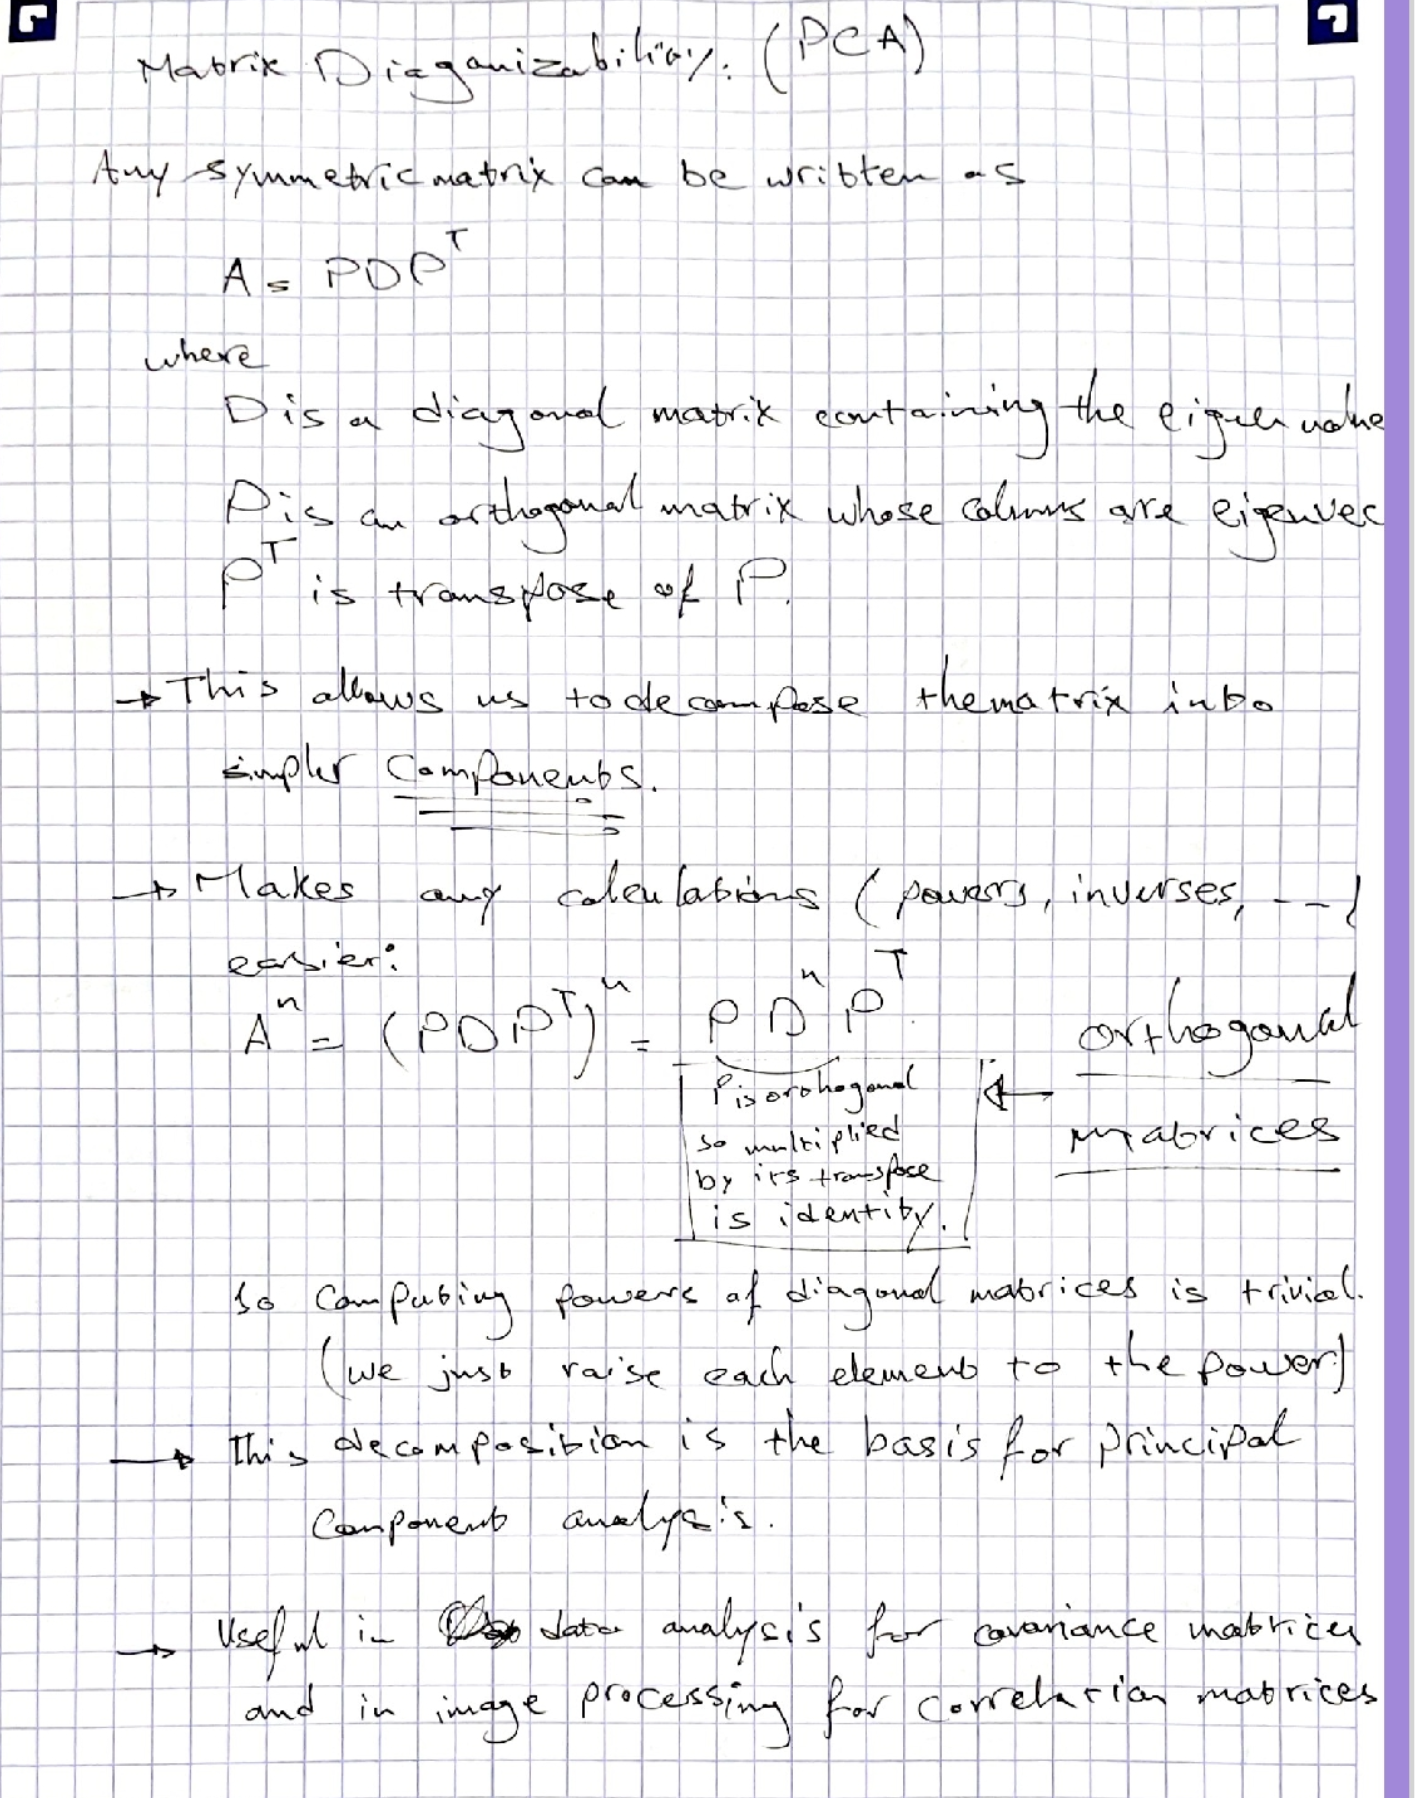 Matrix Diaganizability: (PCA)
Any symmetric matrix can be written as
A = PDP^T
where
D is a diagonal matrix containing the eigen value
P is an orthogonal matrix whose columns are eigenvec
P^T is transpose of P.
→ This allows us to decompose the matrix into
simpler components.
→ Makes any calculations (powers, inverses, ---)
easier:
A^n = (PDP^T)^n = P D^n P^T.
orthogonal
matrices
P is orthogonal
so multiplied
by its transpose
is identity.
so computing powers of diagonal matrices is trivial.
(we just raise each element to the power)
→ this decomposition is the basis for principal
component analysis.
→ Useful in data analysis for covariance matrices
and in image processing for correlation matrices